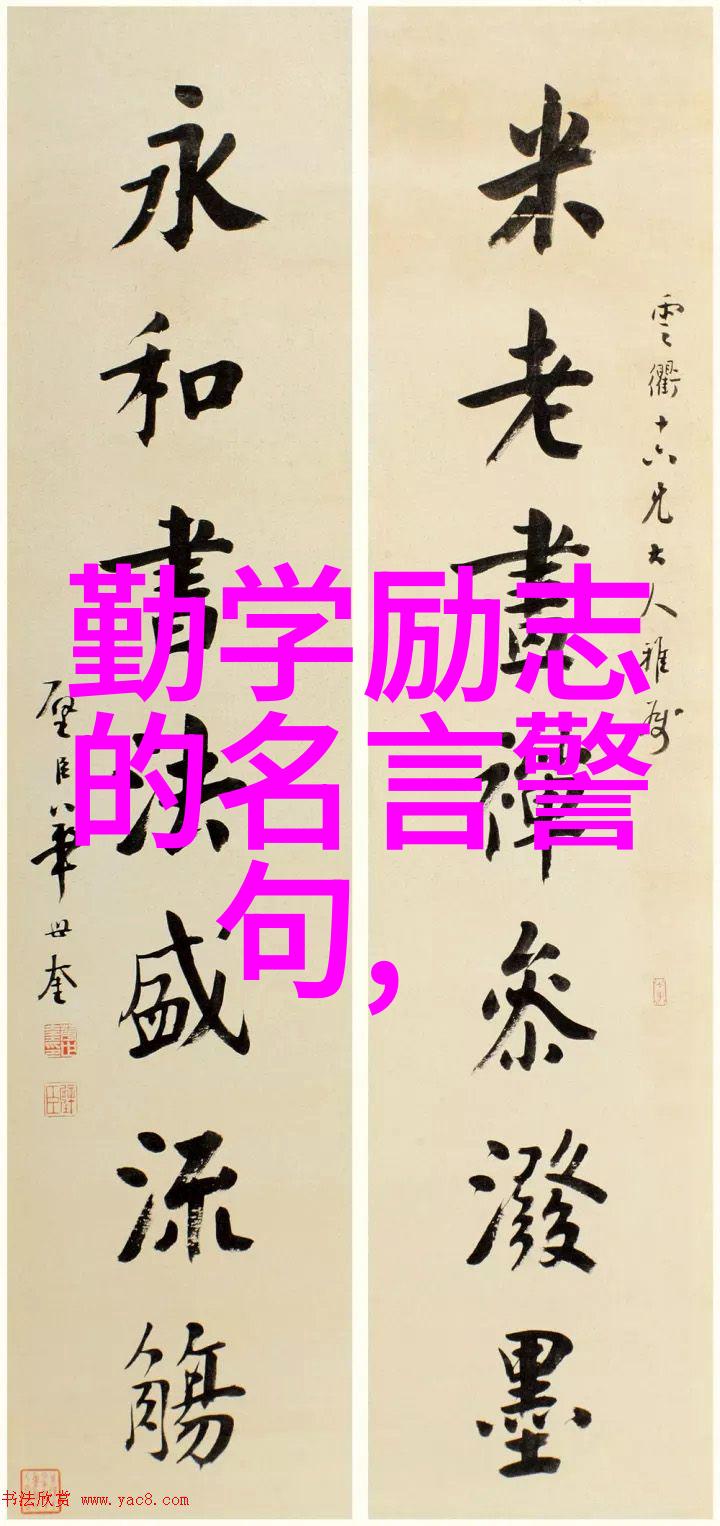 米老畫禪參潑墨
雲衢十六兄大人雅屬
永和書法盛流觴
璧臣華世奎
勤学励志
的名言警
句,
书法欣赏 www.yac8.com